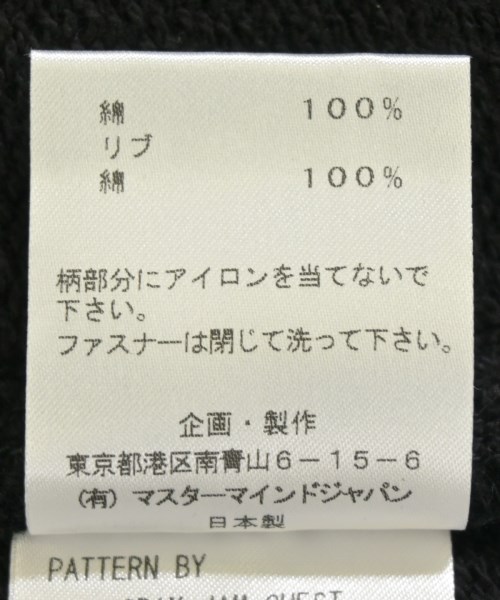 綿 100%
リブ
綿 100%
柄部分にアイロンを当てないで
下さい。
ファスナーは閉じて洗って下さい。
企画・製作
東京都港区南青山6-15-6
(有) マスターマインドジャパン
日本製
PATTERN BY